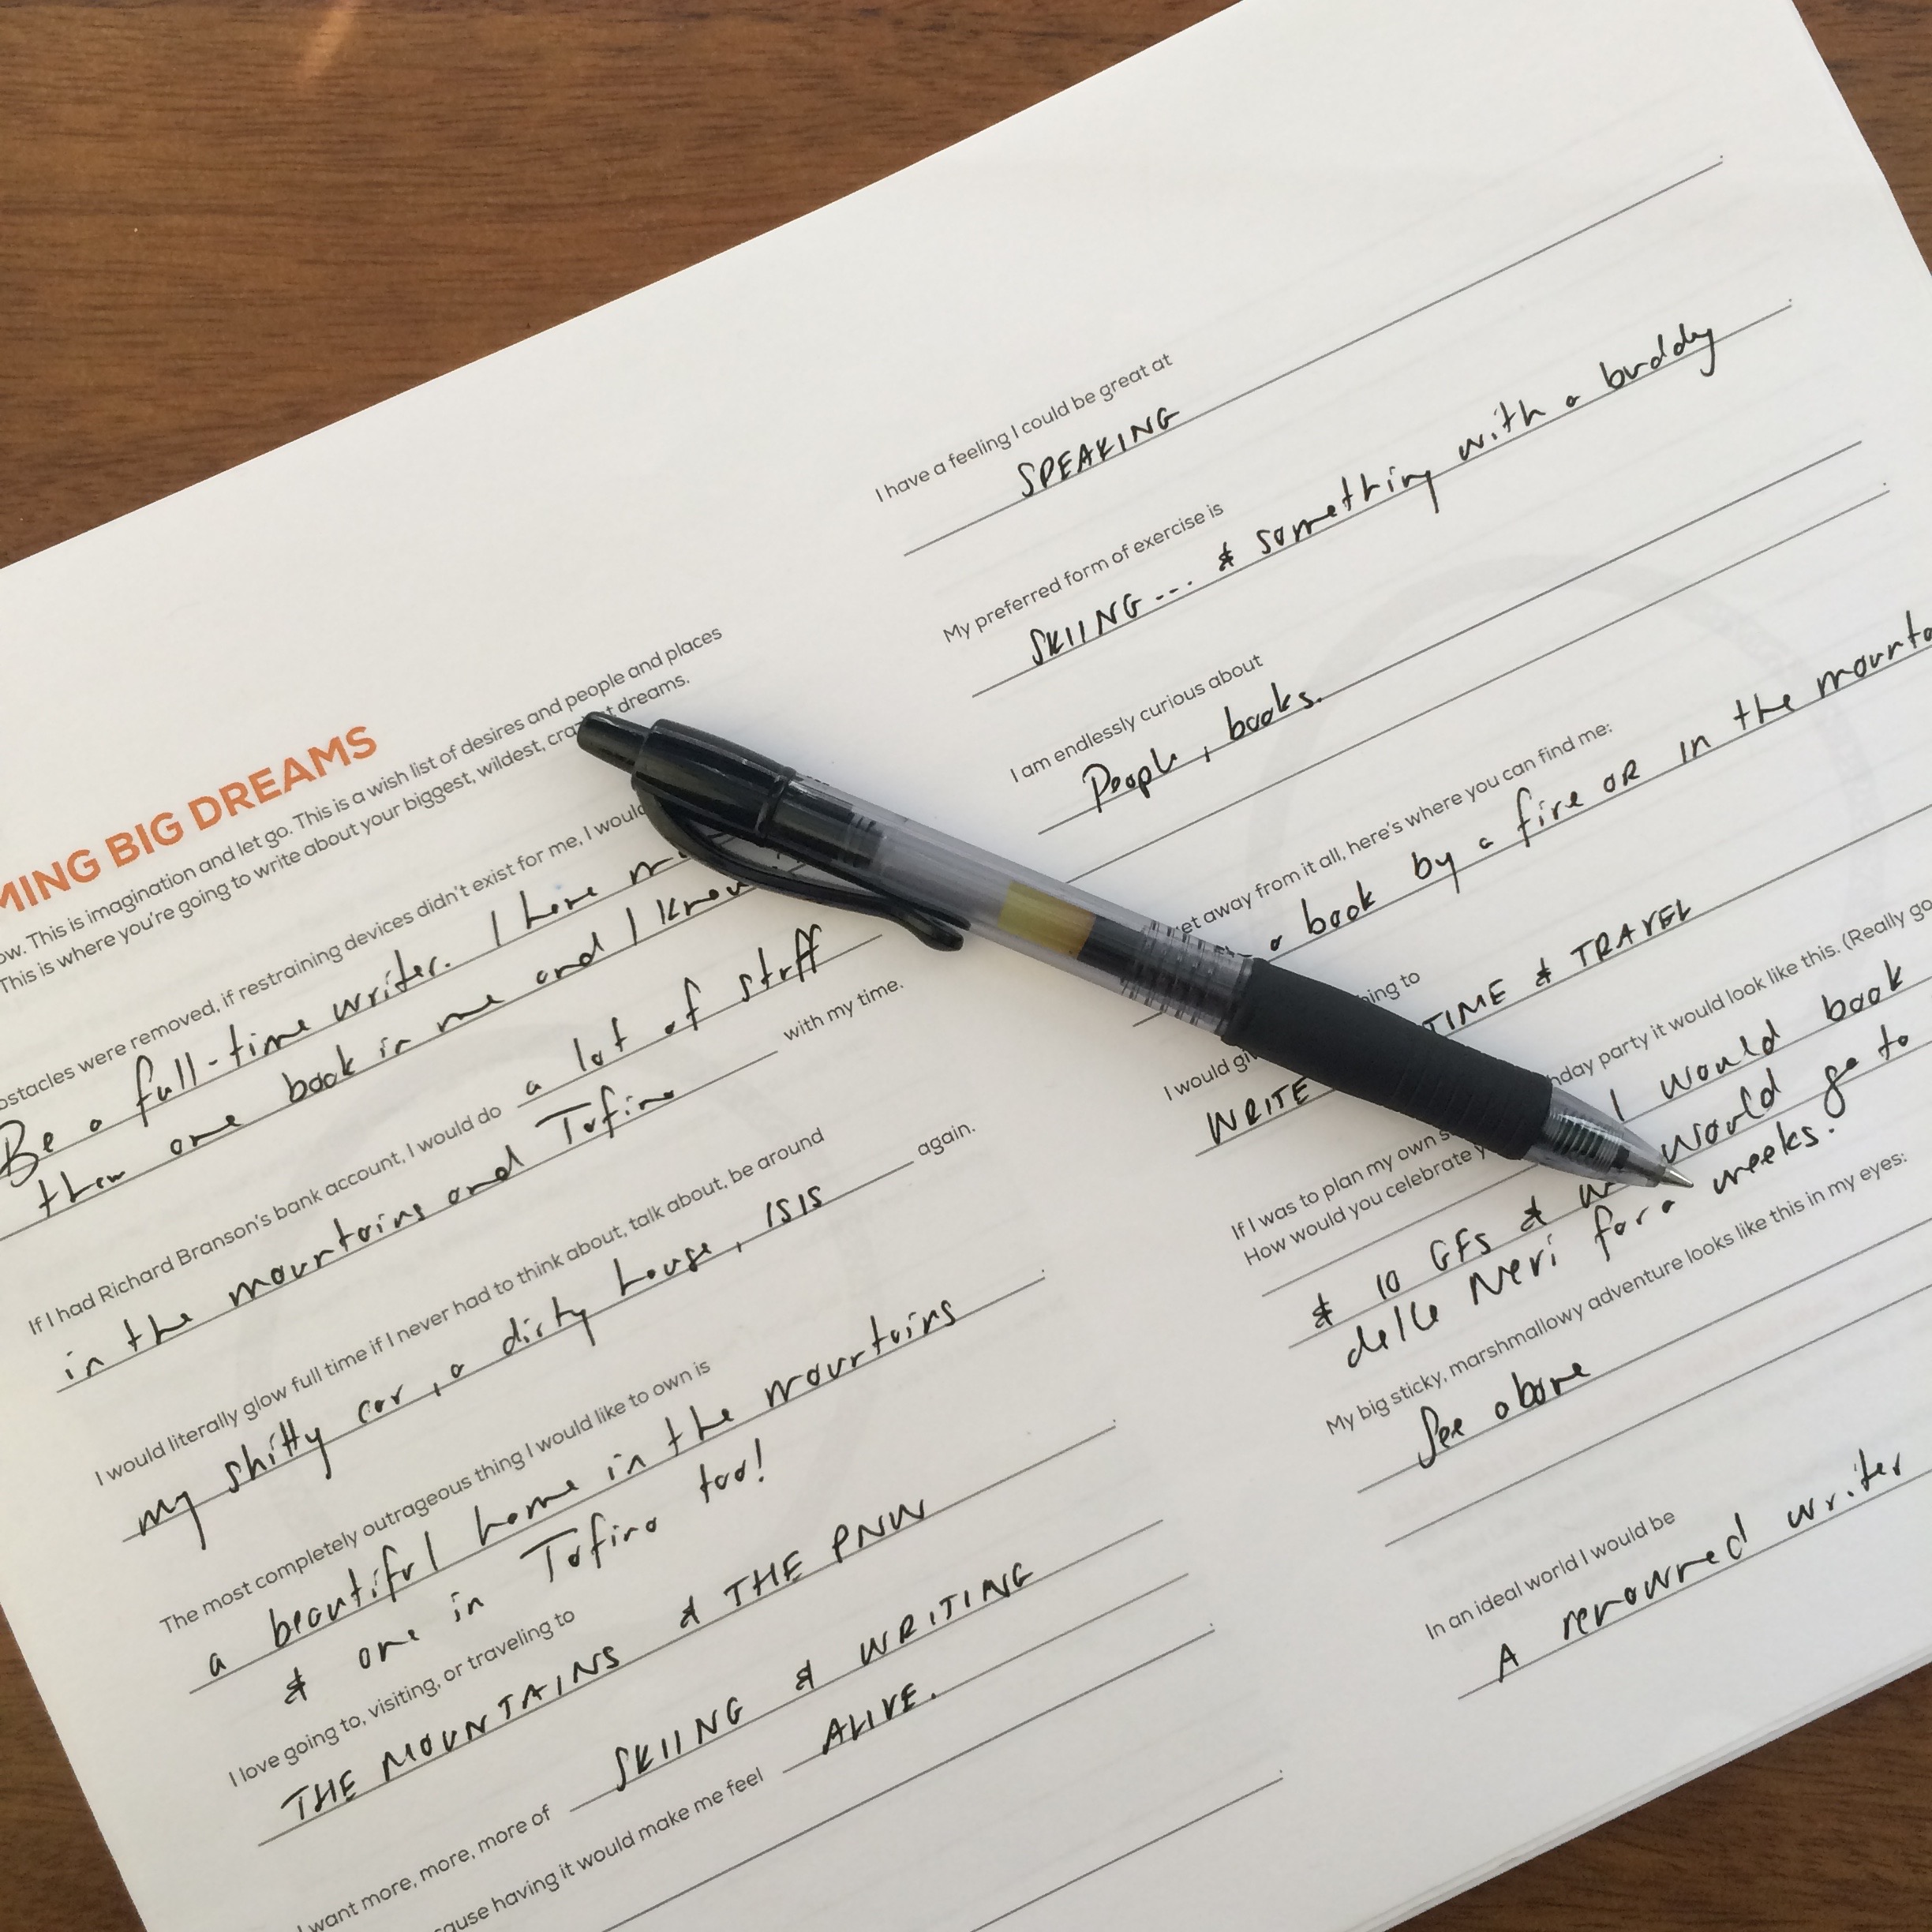 MING BIG DREAMS
ow. This is imagination and let go. This is a wish list of desires and people and places
This is where you're going to write about your biggest, wildest, dreams.
bstacles were removed, if restraining devices didn't exist for me, I would
Be a full-time writer. I have
than one book in me and I know
If I had Richard Branson's bank account, I would do a lot of stuff
in the mountains and Tofino with my time.
I would literally glow full time if I never had to think about, talk about, be around
my shitty car, a dirty house, ISIS again.
The most completely outrageous thing I would like to own is
a beautiful home in the mountains
& one in Tofino too!
I love going to, visiting, or traveling to
THE MOUNTAINS & THE PNW
I want more, more, more of SKIING & WRITING
cause having it would make me feel ALIVE.
I have a feeling I could be great at
SPEAKING
My preferred form of exercise is
SKIING... & something with a buddy
I am endlessly curious about
People, books.
et away from it all, here's where you can find me:
a book by a fire OR in the mounta
I would gi hing to
WRITE TIME & TRAVEL
If I was to plan my own hday party it would look like this. (Really go
How would you celebrate I would book
& 10 GFs & would go to
delle Neri for a weeks.
My big sticky, marshmallowy adventure looks like this in my eyes:
See above
In an ideal world I would be
A renowned writer